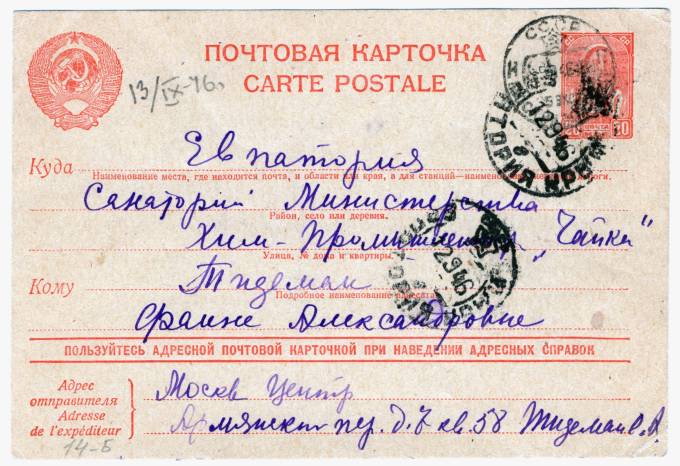 ПОЧТОВАЯ КАРТОЧКА
CARTE POSTALE
13/IX-46.
СССР
Куда Евпатория
Наименование места, где находится почта, и области или края, а для станций—наименование
Санаторий Министерства
Район, село или деревня.
Хим-Промышленности „Чайка"
Улица, № дома и квартиры.
Кому Тидеман
Подробное наименование адресата
Фаине Александровне
ПОЛЬЗУЙТЕСЬ АДРЕСНОЙ ПОЧТОВОЙ КАРТОЧКОЙ ПРИ НАВЕДЕНИИ АДРЕСНЫХ СПРАВОК
Адрес
отправителя
Adresse
de l'expéditeur
Москва Центр
Армянский пер. д. кв. 58 Тидеман
14-Б